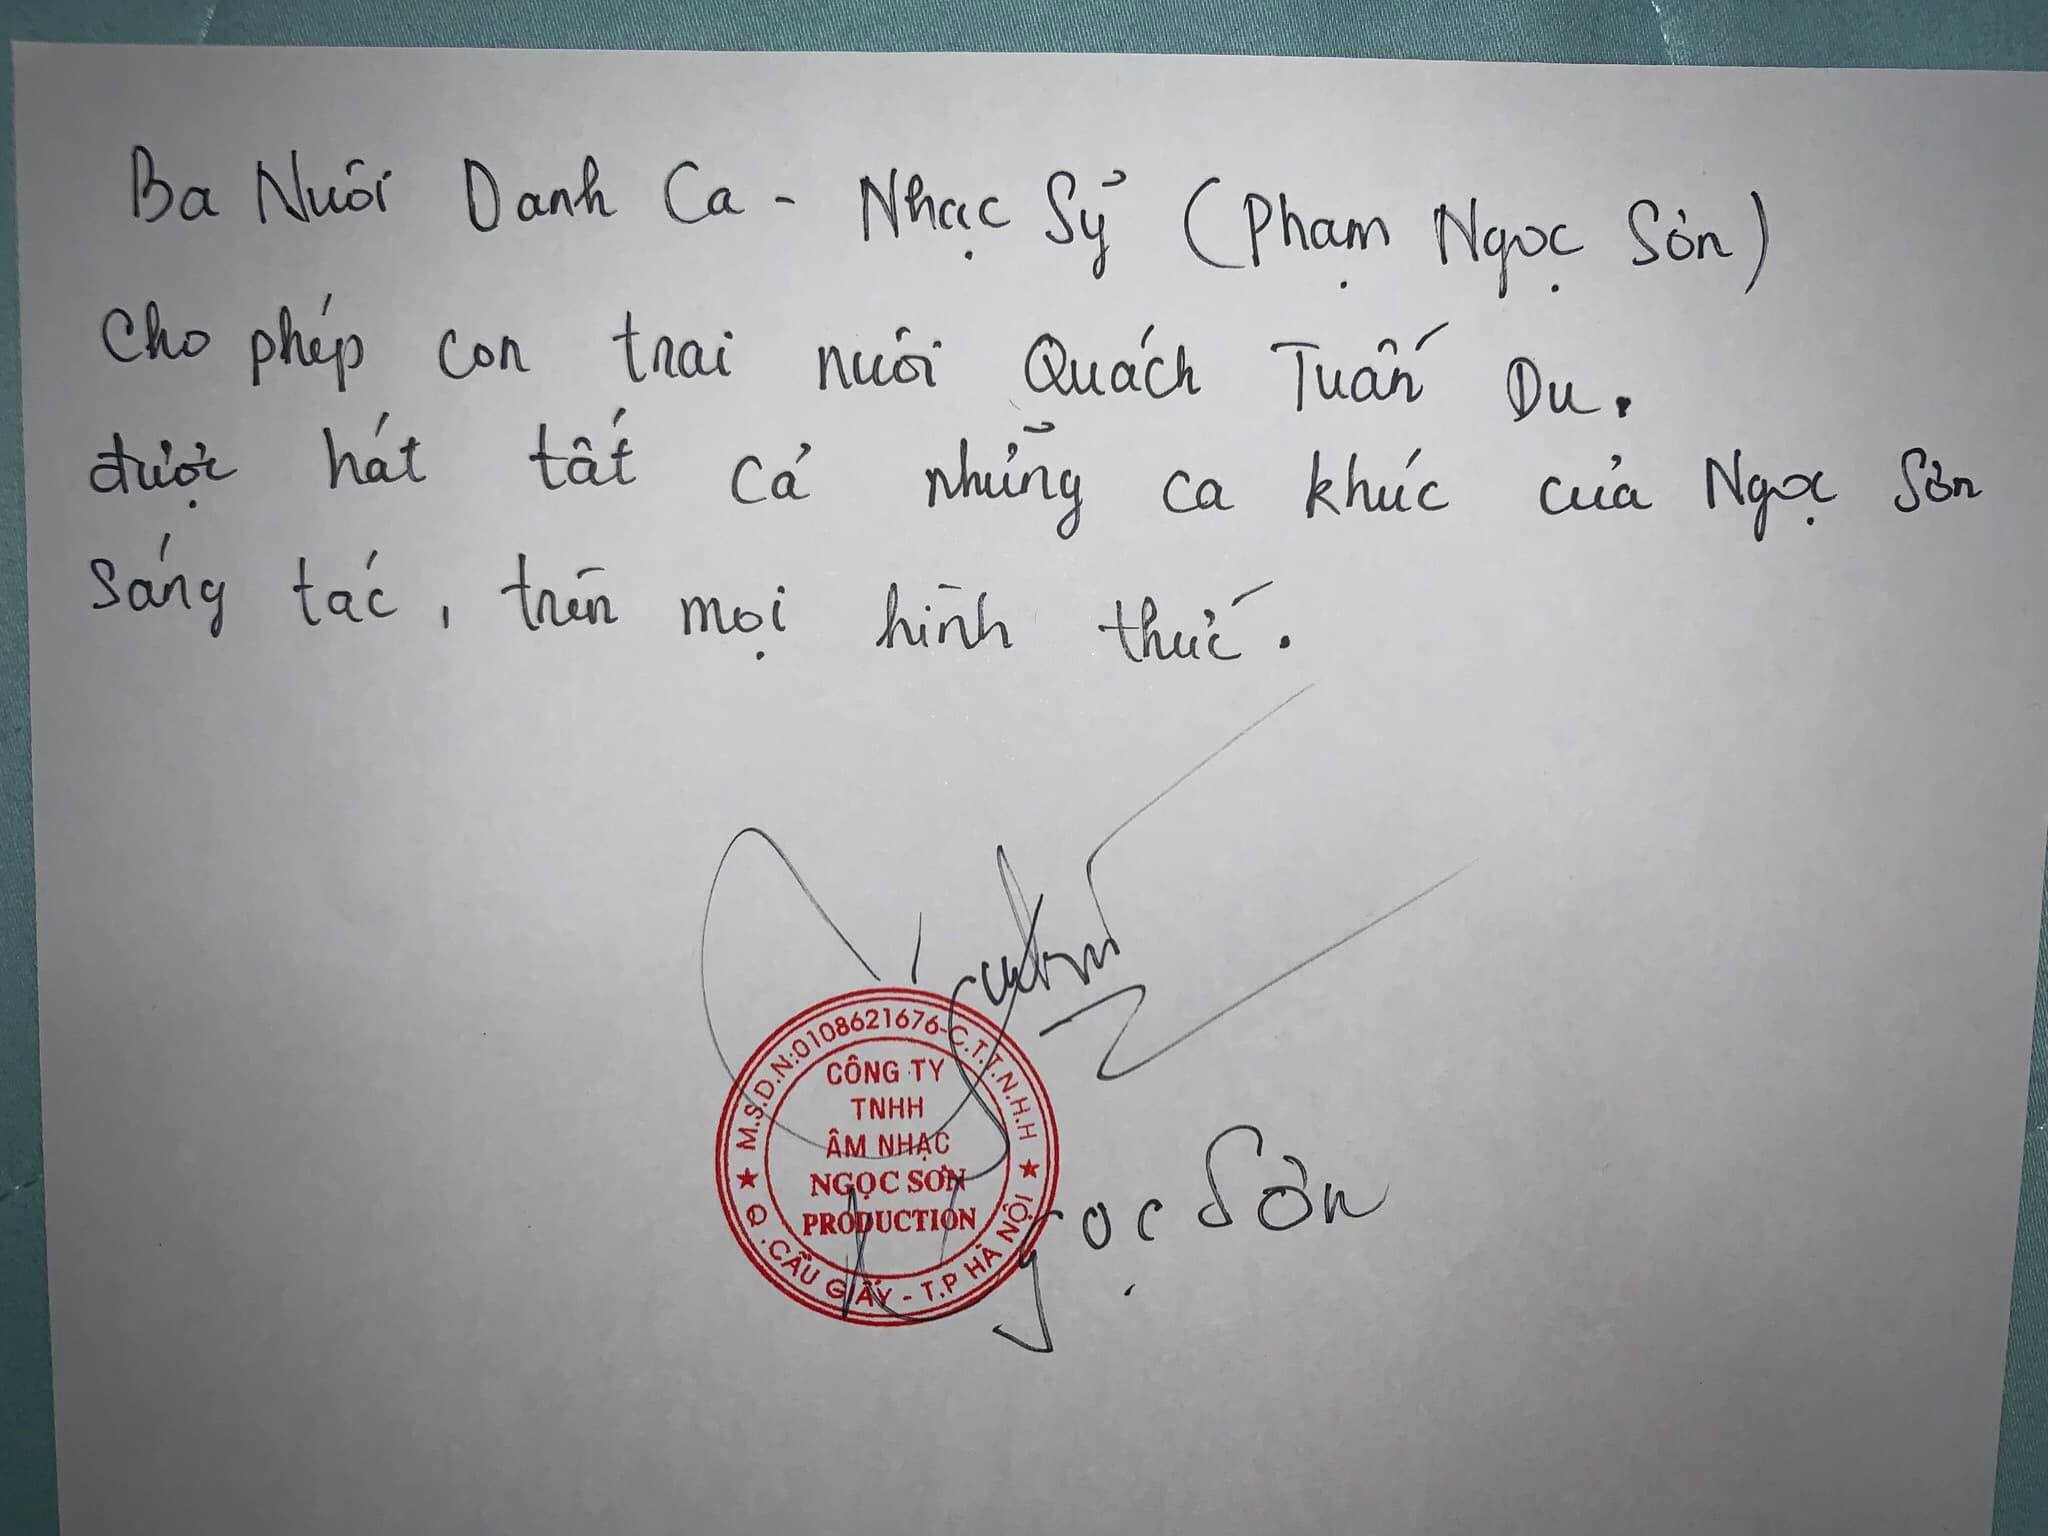 Ba Nuôi Danh Ca - Nhạc Sỷ (Phạm Ngọc Sơn)
Cho phép con trai nuôi Quách Tuấn Du.
được hát tất cả những ca khúc của Ngọc Sơn
sáng tác, trên mọi hình thức.
M.S.D.N:0108621676-C.T.T.N.H.H
CÔNG TY
TNHH
ÂM NHẠC
NGỌC SƠN
PRODUCTION
Q.CẦU GIẤY - T.P HÀ NỘI
Ngọc Sơn